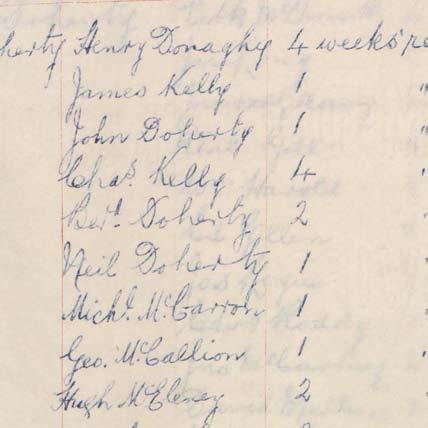 herty Henry Donaghy 4 weeks' pe
James Kelly 1 "
John Doherty 1 "
Chas. Kelly 4 "
Bert. Doherty 2 "
Neil Doherty 1 "
Michl. McCarron 1 "
Geo. McCallion 1 "
Hugh McEleney 2 "